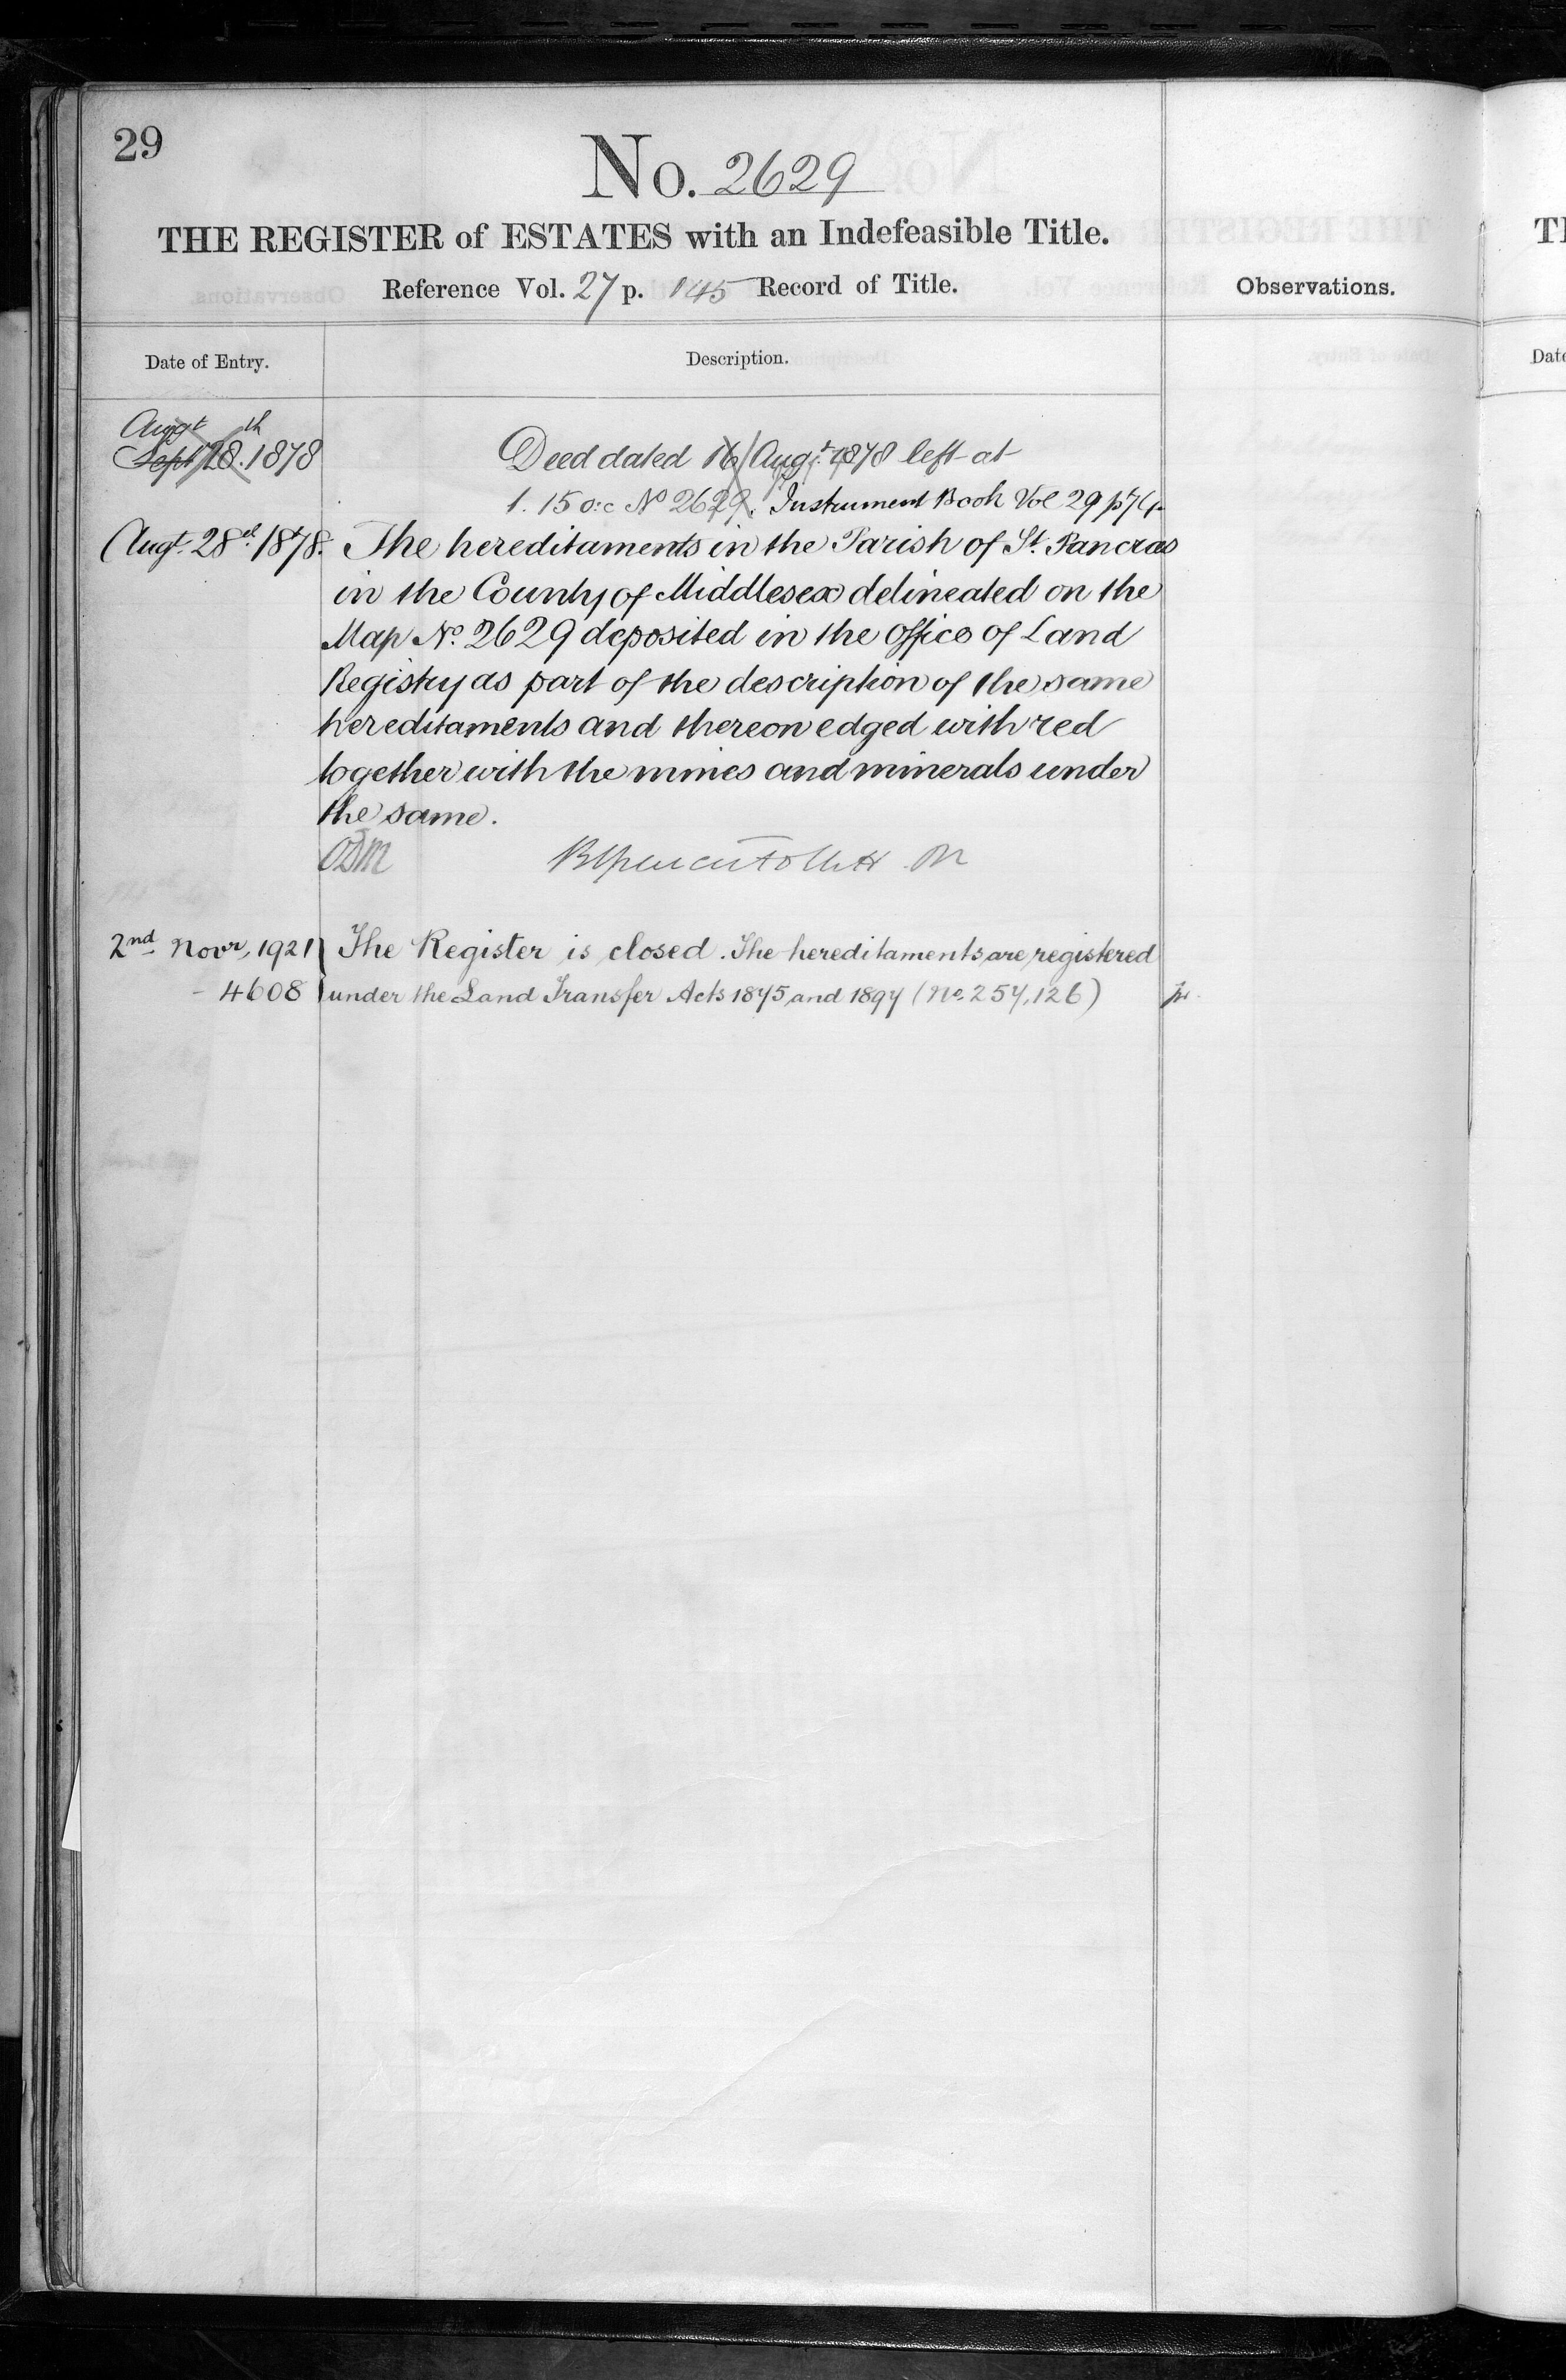 29
No. 2629
THE REGISTER of ESTATES with an Indefeasible Title.
Reference Vol. 27 p. 145 Record of Title.
Observations.
Date of Entry.
Description.
Augt th
Sept 28. 1878
Deed dated 16 Augt. 1878 left at
1. 15 o:c No 2629. Instrument Book Vol 29 p
Augt. 28th 1878. The hereditaments in the Parish of St. Pancras
in the County of Middlesex delineated on the
Map No. 2629 deposited in the Office of Land
Registry as part of the description of the same
hereditaments and thereon edged with red
together with the mines and minerals under
the same.
2nd Novr, 1921 The Register is closed. The hereditaments are registered
- 4608 under the Land Transfer Acts 1875 and 1897 (No. 257,126)